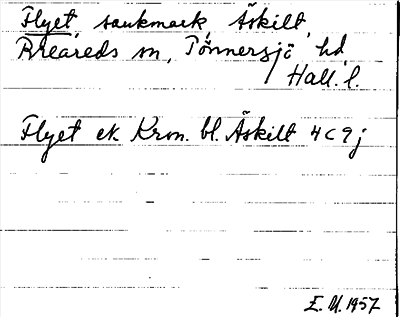 Flyet sankmark, Äskilt,
Breareds sn, Tönnersjö hd
Hall. l.
Flyet ek. Krm. bl. Äskilt 4 c 9 j
E. U. 1957